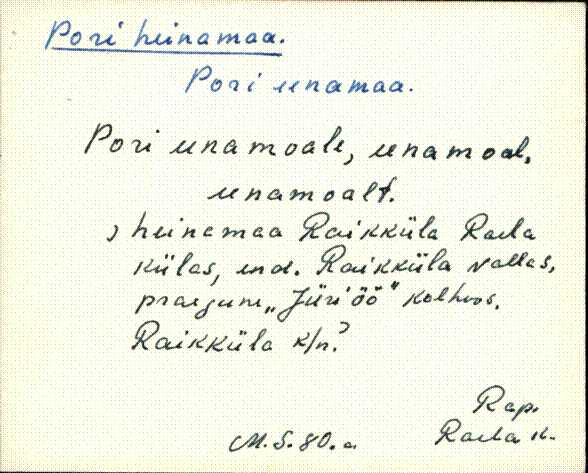 Pori heinamaa.
Pori einamaa.
Pori einamoale, einamoal,
einamoalt.
) heinamaa Raikküla Raela
külas, end. Raikküla vallas,
praegune „Jüriöö" kolhoos.
Raikküla k/n.)
Rap.
M. S. 80. a. Raela k.